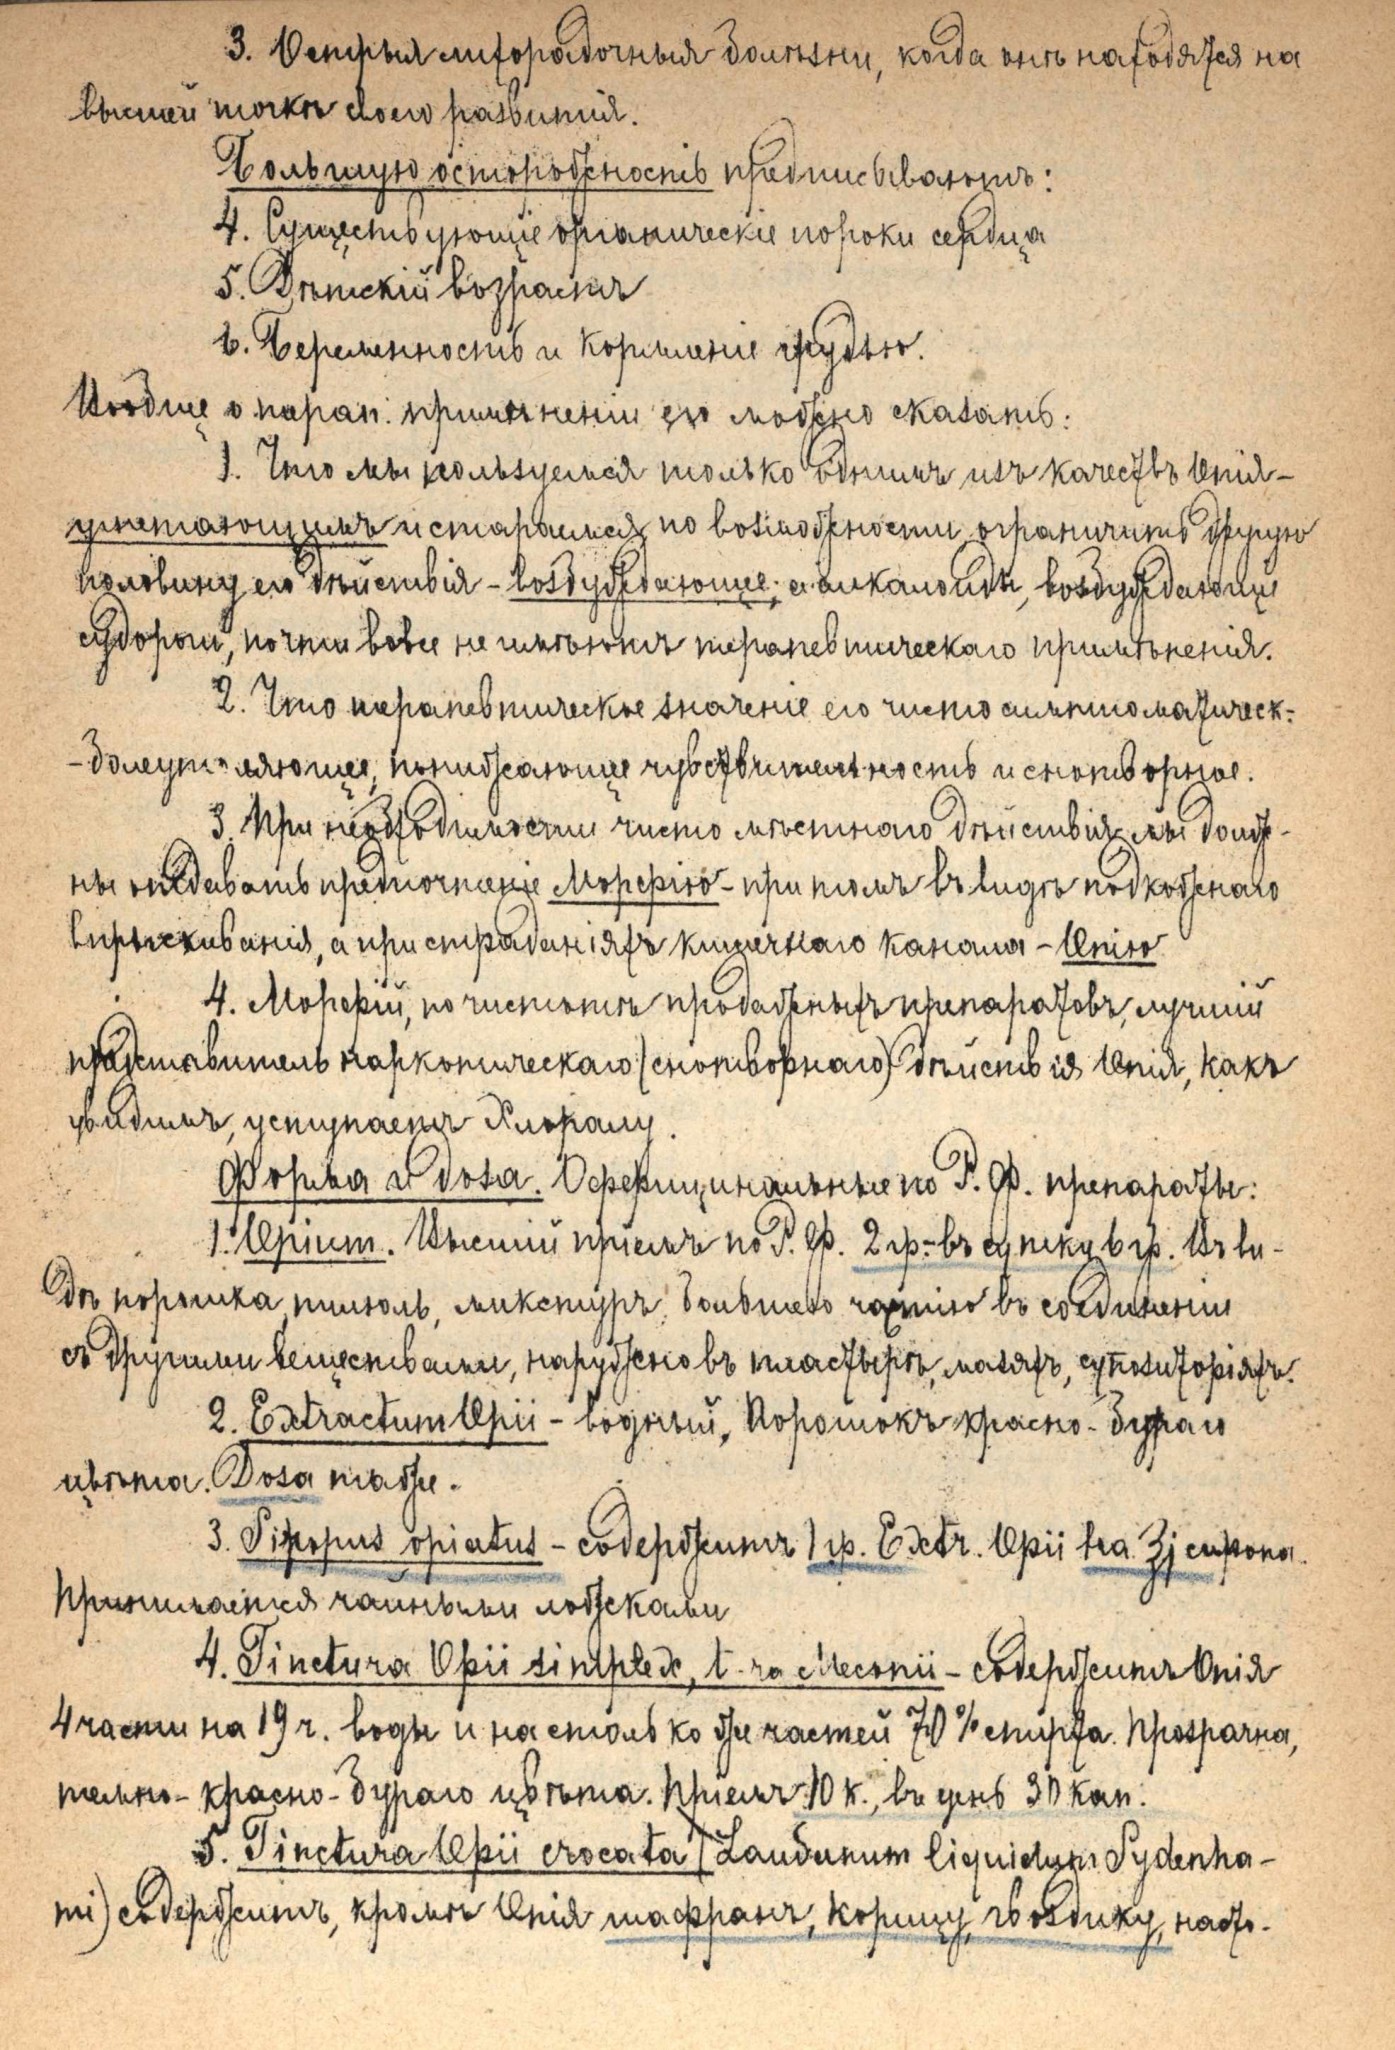 3. Острыя лихорадочныя болѣзни, когда онѣ находятся на
высшей точкѣ своего развитія.
Большую осторожность предписываютъ:
4. Существующіе органическіе пороки сердца
5. Дѣтскій возрастъ
6. Беременность и кормленіе грудью.
Вообще о терап. примѣненіи его можно сказать:
1. Что мы пользуемся только однимъ изъ качествъ Опія -
угнетающимъ и стараемся, по возможности ограничить другую
половину его дѣйствія - возбуждающее; а алкалоиды, возбуждающіе
судороги, почти вовсе не имѣютъ терапевтическаго примѣненія.
2. Что терапевтическое значеніе его чисто симптоматическ-
- болеутоляющее, понижающее чувствительность и снотворное.
3. При необходимости чисто мѣстнаго дѣйствія мы долж-
ны отдавать предпочтеніе Морфію - при томъ въ видѣ подкожнаго
впрыскиванія, а при страданіяхъ кишечнаго канала - Опію
4. Морфій, по чистотѣ продажныхъ препаратовъ, лучшій
представитель наркотическаго (снотворнаго) дѣйствія Опія, какъ
увидимъ, уступаетъ Хлоралу.
Форма и доза. Оффицинальные по Р. Ф. препараты:
1. Opium. Высшій пріемъ по Р. Ф. 2 гр. - въ сутки 6 гр. Въ ви-
дѣ порошка, пилюль, микстуръ, большею частію въ соединеніи
съ другими веществами, наружно въ пластырѣ, мазяхъ, супозиторіяхъ.
2. Extractum Opii - водный, Порошокъ красно-бураго
цвѣта. Доза таже.
3. Siropus opiatus - содержитъ 1 гр. Extr. Opii на ℥j сиропа.
Принимается чайными ложками
4. Tinctura Opii simplex, t-ra Meconii - содержитъ Опія
4 части на 19 ч. воды и на столько же частей 70% спирта. Прозрачна,
темно-красно-бураго цвѣта. Пріемъ 10 к., въ день 30 кап.
5. Tinctura Opii crocata (Laudanum liquidum Sydenha-
mi) содержитъ, кромѣ Опія шафранъ, корицу, гвоздику, насто-